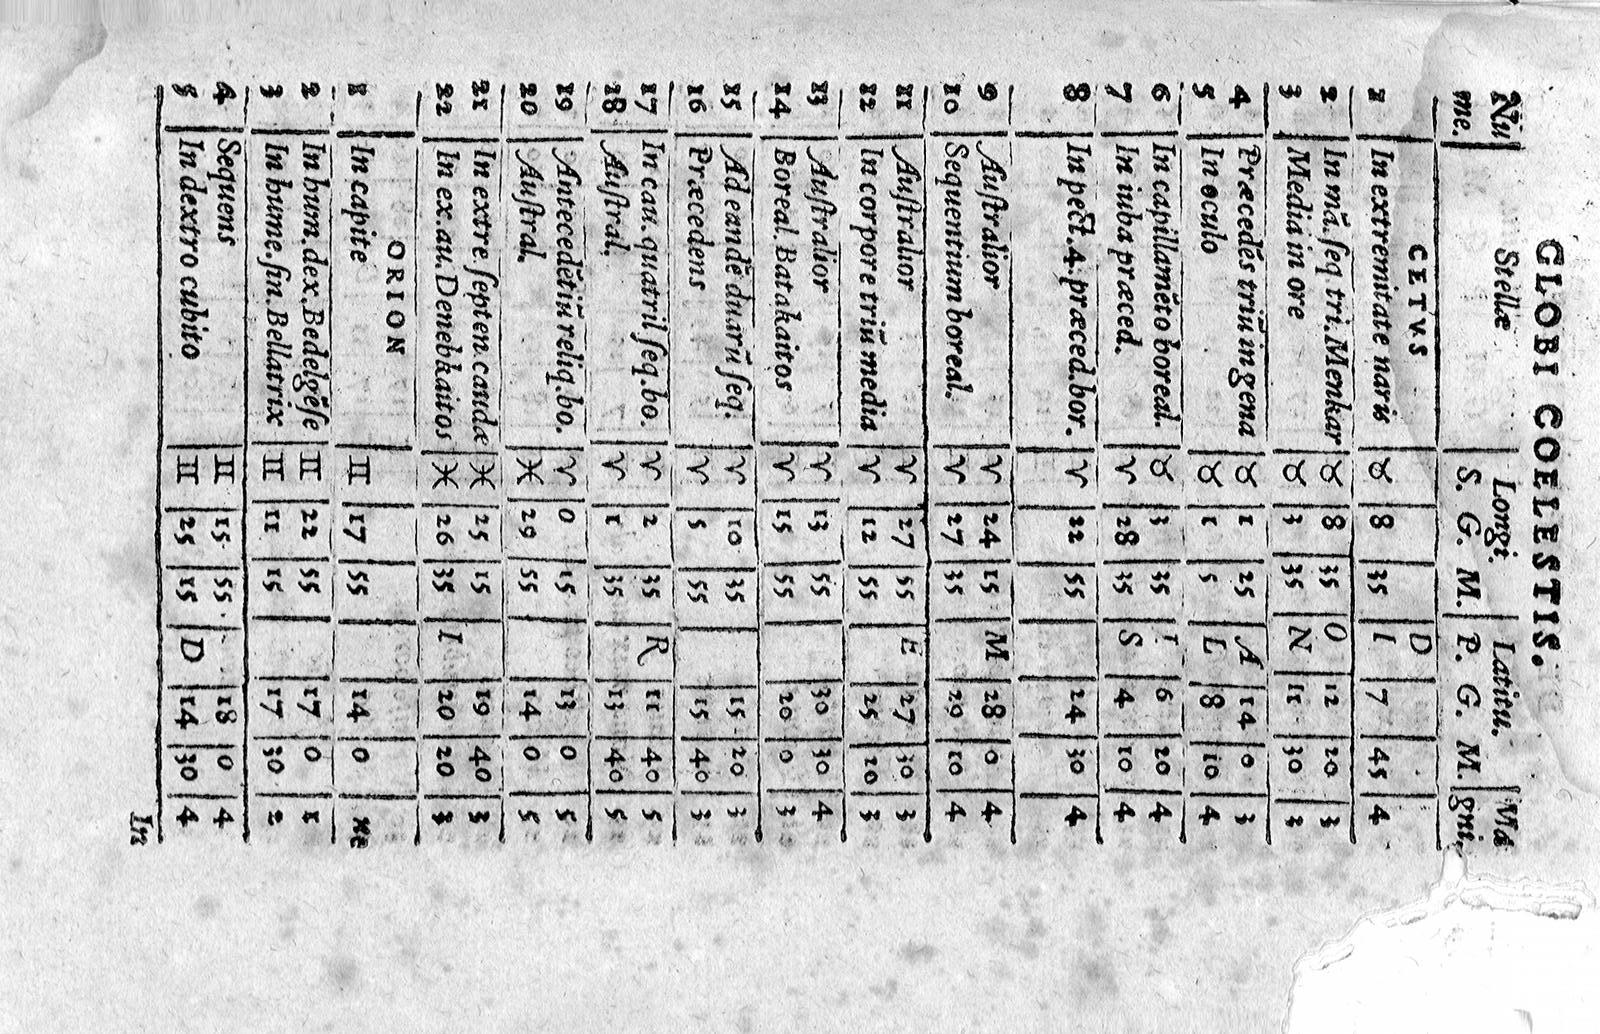 GLOBI COELESTIS.
Nu Stellæ Longi. Latitu. Ma
me. S. G. M. P. G. M. gni.
CETVS D
1 In extremitate naris ♉ 8 35 I 7 45 4
2 In mã. ſeq tri. Menkar ♉ 8 35 O 12 20 3
3 Media in ore ♉ 3 35 N 11 30 3
4 Præcedẽs triũ in gena ♉ 1 25 A 14 0 3
5 In oculo ♉ 1 5 L 8 10 4
6 In capillamẽto boreal. ♉ 3 35 I 6 20 4
7 In iuba præced. ♈ 28 35 S 4 10 4
8 In pect. 4. præced. bor. ♈ 22 55 24 30 4
9 Auſtralior ♈ 24 15 M 28 0 4
10 Sequentium boreal. ♈ 27 35 29 10 4
11 Auſtralior ♈ 27 55 E 27 30 3
12 In corpore triũ media ♈ 12 55 25 20 3
13 Auſtralior ♈ 13 55 30 30 4
14 Boreal. Batakaitos ♈ 15 55 20 0 3
15 Ad eandẽ duarũ ſeq. ♈ 10 35 15 20 3
16 Præcedens ♈ 5 55 15 40 3
17 In cau. quatril ſeq. bo. ♈ 2 35 R 11 40 5
18 Auſtral. ♈ 1 35 13 40 5
19 Antecedẽtiũ reliq. bo. ♈ 0 15 13 0 5
20 Auſtral. ♓ 29 55 14 0 5
21 In extre. ſepten. caudæ ♓ 25 15 19 40 3
22 In ex. au. Denebkaitos ♓ 26 35 I 20 20 3
ORION
1 In capite ♊ 17 55 14 0 ne
2 In hum. dex. Bedelgẽſe ♊ 22 55 17 0 1
3 In hume. ſin. Bellatrix ♊ 11 15 17 30 2
4 Sequens ♊ 15 55 18 0 4
5 In dextro cubito ♊ 25 15 D 14 30 4
In